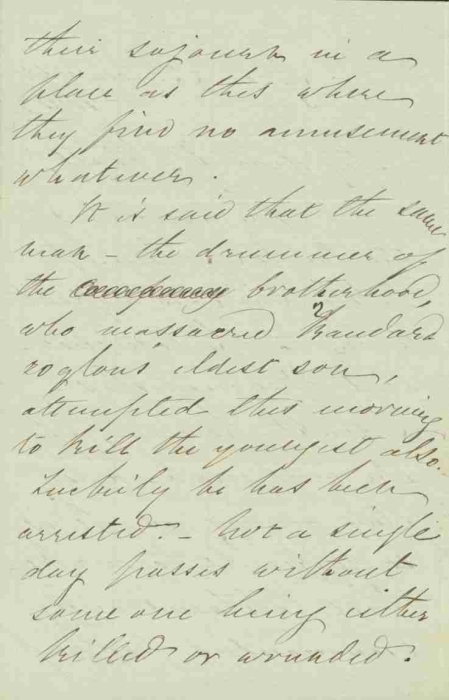 their sojourn in a
place as this where
they find no amusement
whatever.
It is said that the same
man - the drummer of
the brotherhood,
who massacred
roglou's eldest son,
attempted this morning
to kill the youngest also.
Luckily he has been
arrested. - Not a single
day passes without
some one being either
killed or wounded.